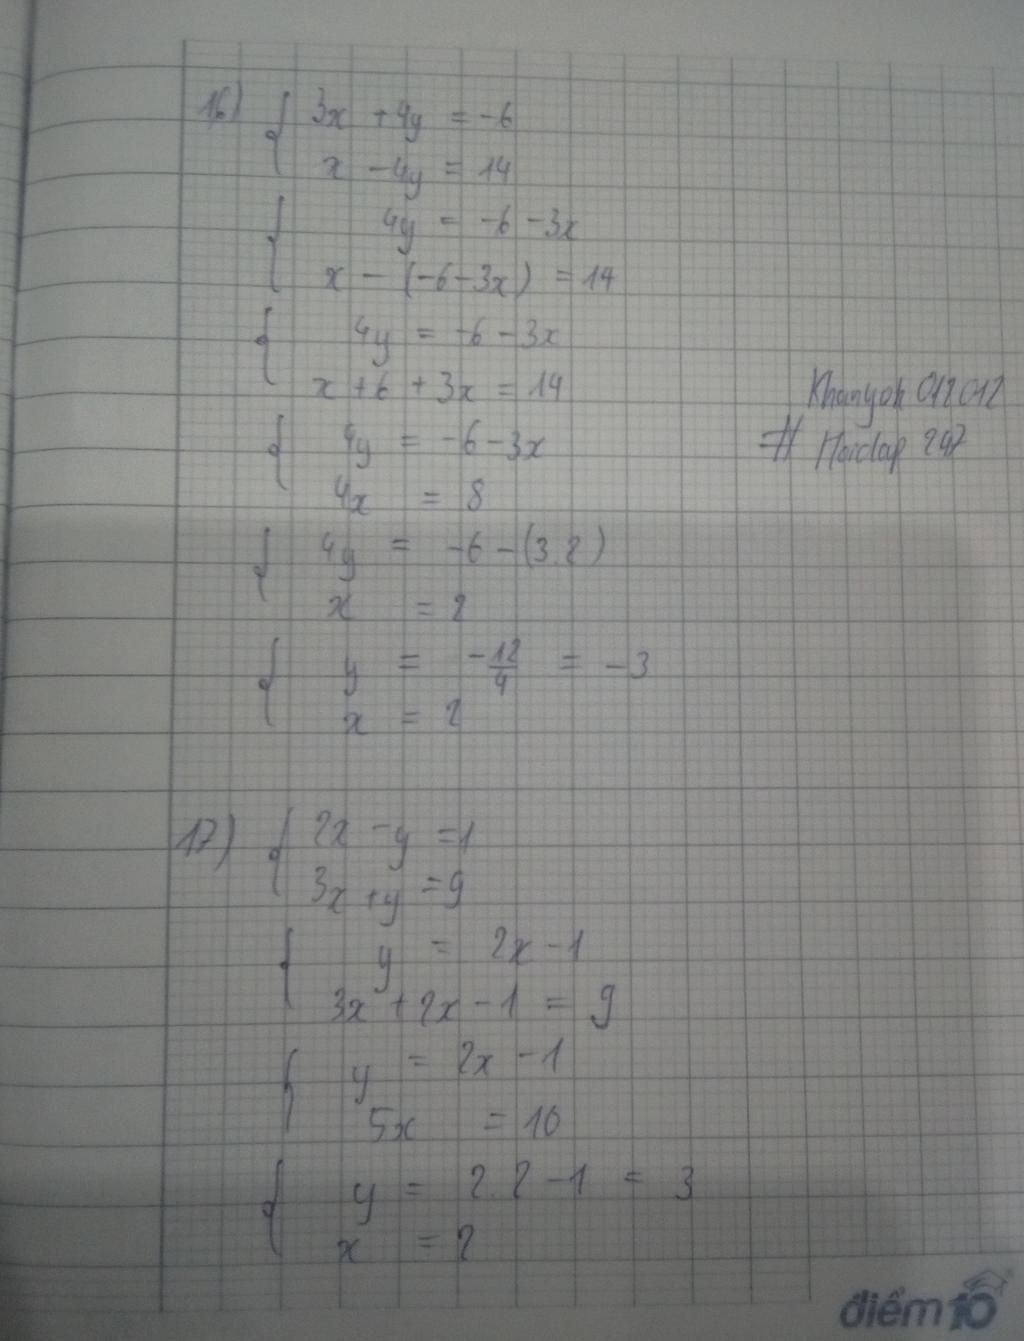 16) { 3x + 4y = -6
x - 4y = 14
{ 4y = -6 - 3x
x - (-6 - 3x) = 14
{ 4y = -6 - 3x
x + 6 + 3x = 14
{ 4y = -6 - 3x
4x = 8
{ 4y = -6 - (3.2)
x = 2
{ y = -12/4 = -3
x = 2
012012
# Hoidap 247
17) { 2x - y = 1
3x + y = 9
{ y = 2x - 1
3x + 2x - 1 = 9
{ y = 2x - 1
5x = 10
{ y = 2.2 - 1 = 3
x = 2
điểm 10